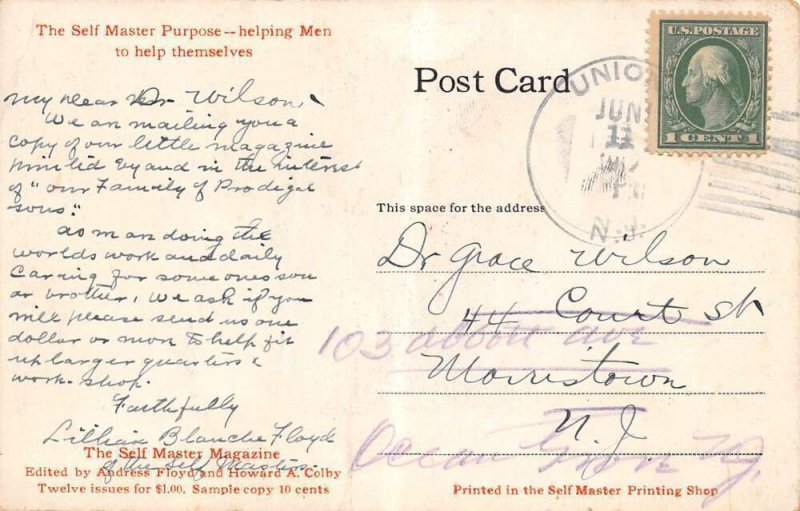 The Self Master Purpose--helping Men
to help themselves
My Dear Dr Wilson
We are mailing you a
copy of our little magazine
printed by and in the interest
of "our Family of Prodigal
sons."
As man doing the
worlds work and daily
caring for some ones son
or brother, we ask if you
will please send us one
dollar or more to help fit
up larger quarters &
work-shop.
Faithfully
Lillian Blanche Floyd
of the Self Masters.
The Self Master Magazine
Edited by Andress Floyd and Howard A. Colby
Twelve issues for $1.00. Sample copy 10 cents
Post Card
UNION
JUN
11
N.J.
U.S. POSTAGE
1 CENT 1
This space for the address
Dr Grace Wilson
44 Court St
103 Abbott Ave
Morristown
N. J.
Ocean Grove NJ.
Printed in the Self Master Printing Shop